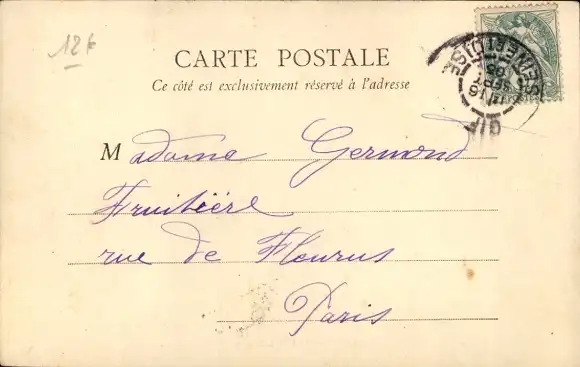 12 f
CARTE POSTALE
Ce côté est exclusivement réservé à l'adresse
Madame Germond
Fruitière
rue de Fleurus
Paris
SEINE ET OISE
GIF
16
SEPT